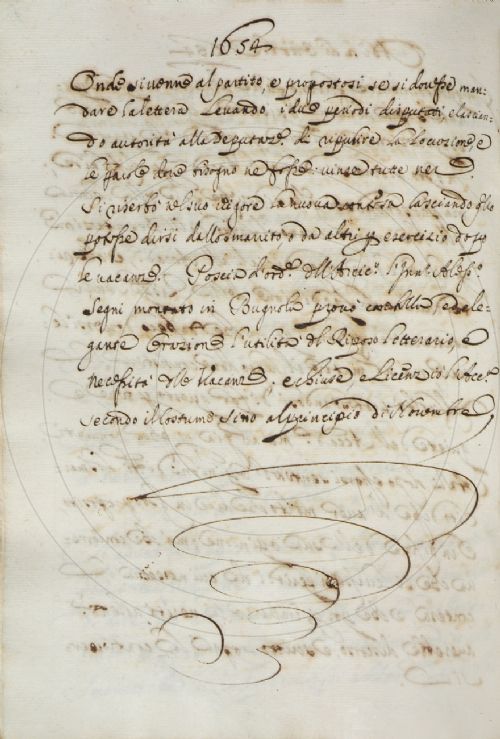 1654
Onde si venne al partito, e propostosi se si dovesse man-
dare la lettera Levando i due periodi disputati, e lascian-
do autorità alla Deputaz.e di ripulire la Locuzione, e
le parole dove bisogno ne fosse: vinse tutte nere.
Si riserbò nel suo vigore la nuova contesa lasciando
potesse dirsi dallo smarrito o da altri esercizio dopo
le vacanze. Poscia d'ord.e dell'Arcic.o l'Inn.o Aless.o
Segni montato in Bugnola provò con bella ed ele-
gante Orazione l'utilità del Riposo letterario, e
necessità delle Vacanze; e chiuse e Licenziò l'Acc.a
secondo il Costume sino al principio di Novembre